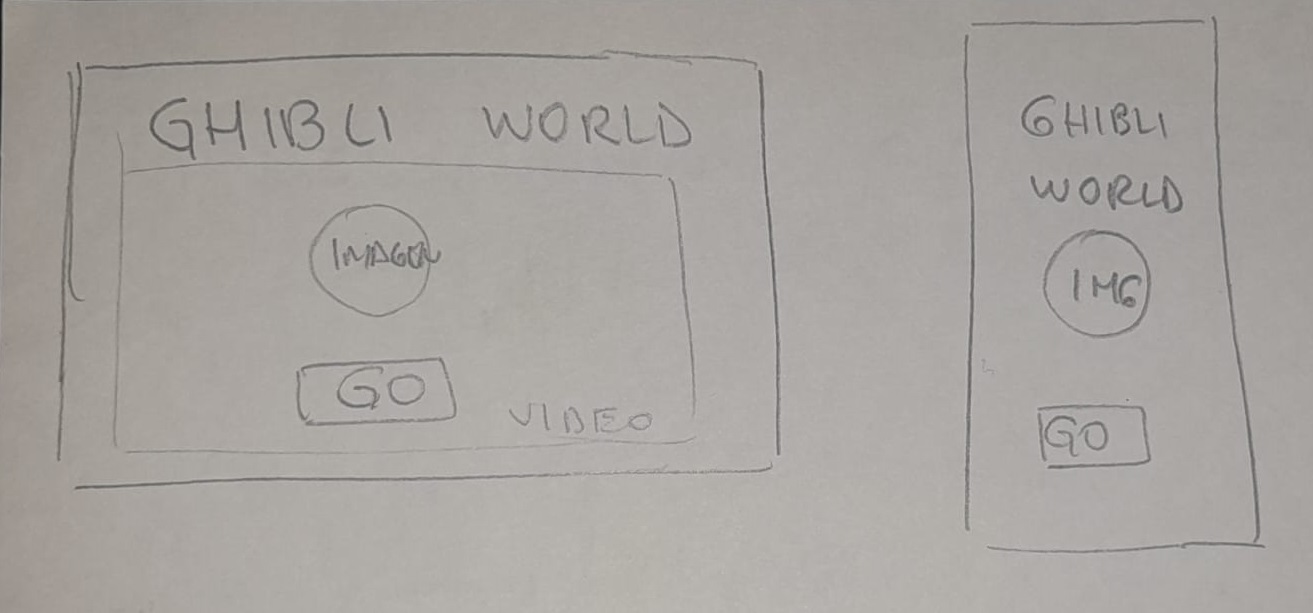 GHIBLI WORLD
IMAGEN
GO
VIDEO
GHIBLI
WORLD
IMG
GO